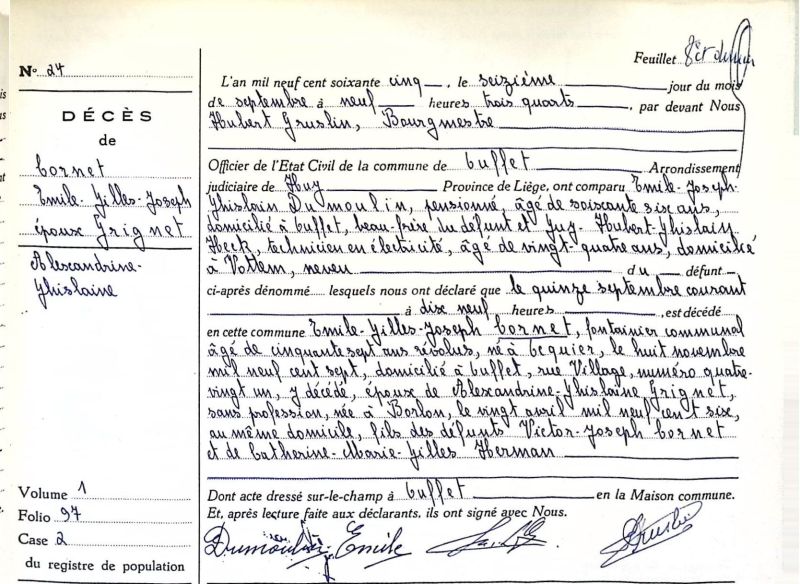 Feuillet
N° 24
DÉCÈS
de
Cornet
Emile-Gilles-Joseph
époux Grignet
Alexandrine-
Ghislaine
Volume 1
Folio 97
Case 2
du registre de population
L'an mil neuf cent soixante cinq, le seizième jour du mois
de septembre à neuf heures trois quarts, par devant Nous
Hubert Gruslin, Bourgmestre
Officier de l'Etat Civil de la commune de Ouffet Arrondissement
judiciaire de Huy Province de Liège, ont comparu Emile-Joseph-
Ghislain Dumoulin, pensionné, âgé de soixante six ans,
domicilié à Ouffet, beau-frère du défunt et Guy-Hubert-Ghislain
Heck, technicien en électricité, âgé de vingt-quatre ans, domicilié
à Vottem, neveu du défunt
ci-après dénommé lesquels nous ont déclaré que le quinze septembre courant
à dix neuf heures, est décédé
en cette commune Emile-Gilles-Joseph Cornet, fontainier communal
âgé de cinquante sept ans révolus, né à Ocquier, le huit novembre
mil neuf cent sept, domicilié à Ouffet, rue Village, numéro quatre-
vingt un, y décédé, époux de Alexandrine-Ghislaine Grignet,
sans profession, née à Borlon, le vingt avril mil neuf cent six,
au même domicile, fils des défunts Victor-Joseph Cornet
et de Catherine-Marie-Gilles Herman
Dont acte dressé sur-le-champ à Ouffet en la Maison commune.
Et, après lecture faite aux déclarants, ils ont signé avec Nous.
Dumoulin Emile
Gruslin